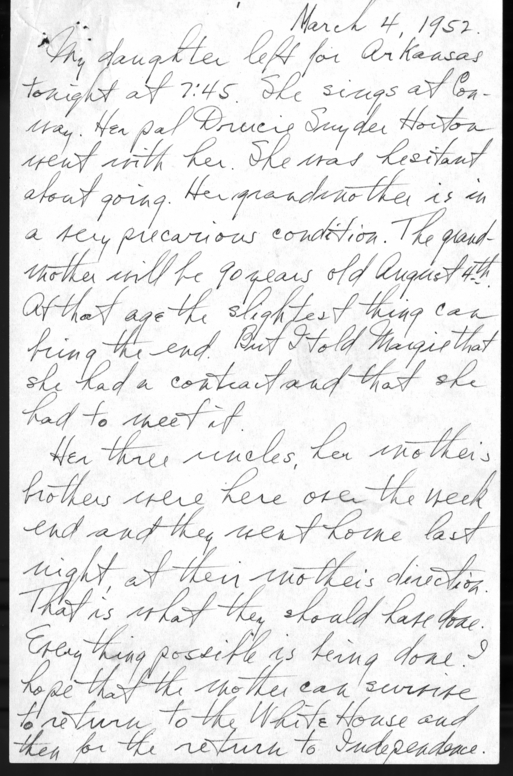 March 4, 1952.
My daughter left for Arkansas
tonight at 7:45. She sings at Con-
way. Her pal Drucie Snyder Horton
went with her. She was hesitant
about going. Her grandmother is in
a very precarious condition. The grand-
mother will be 90 years old August 4th.
At that age the slightest thing can
bring the end. But I told Margie that
she had a contract and that she
had to meet it.
Her three uncles, her mother's
brothers were here over the week
end and they went home last
night, at their mother's direction.
That is what they should have done.
Everything possible is being done. I
hope that the mother can survive
to return to the White House and
then for the return to Independence.